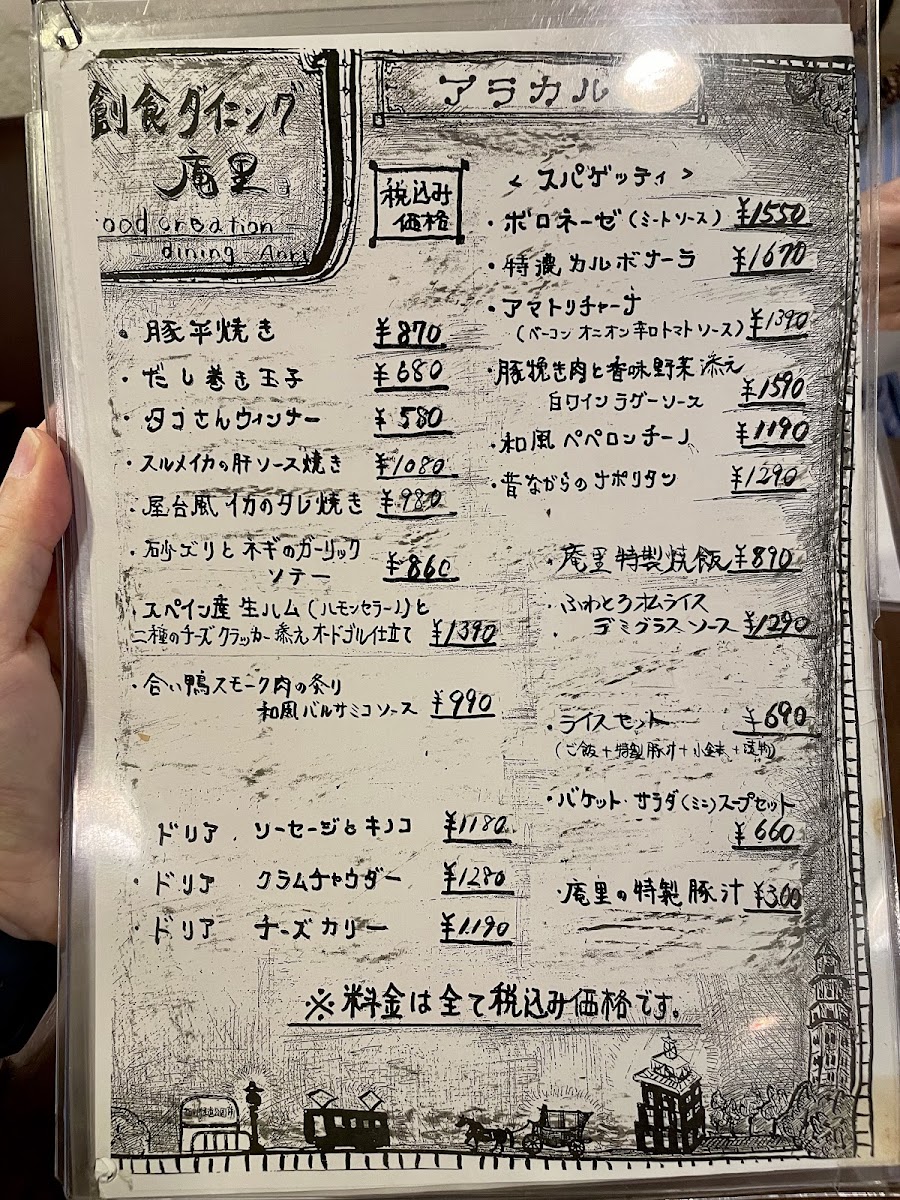 創食ダイニング
庵里
ood creation
dining Anri
アラカル
税込み
価格
・豚平焼き ¥870
・だし巻き玉子 ¥680
・タコさんウィンナー ¥580
・スルメイカの肝ソース焼き ¥1080
・屋台風イカのタレ焼き ¥980
・砂ズリとネギのガーリック
ソテー ¥860
・スペイン産生ハム(ハモンセラーノ)と
二種のチーズクラッカー添えオードブル仕立て ¥1390
・合い鴨スモーク肉の炙り
和風バルサミコソース ¥990
・ドリア ソーセージとキノコ ¥1180
・ドリア クラムチャウダー ¥1280
・ドリア チーズカリー ¥1190
<スパゲッティ>
・ボロネーゼ(ミートソース) ¥1550
・特濃カルボナーラ ¥1670
・アマトリチャーナ
(ベーコンオニオン辛口トマトソース) ¥1390
・豚挽き肉と香味野菜添え
白ワインラグーソース ¥1590
・和風ペペロンチーノ ¥1190
・昔ながらのナポリタン ¥1290
・庵里特製焼飯 ¥890
・ふわとろオムライス
デミグラスソース ¥1290
・ライスセット ¥690
(ご飯+特製豚汁+小鉢+漬物)
・バケット・サラダ(ミニ)スープセット
¥660
・庵里の特製豚汁 ¥360
※料金は全て税込み価格です。